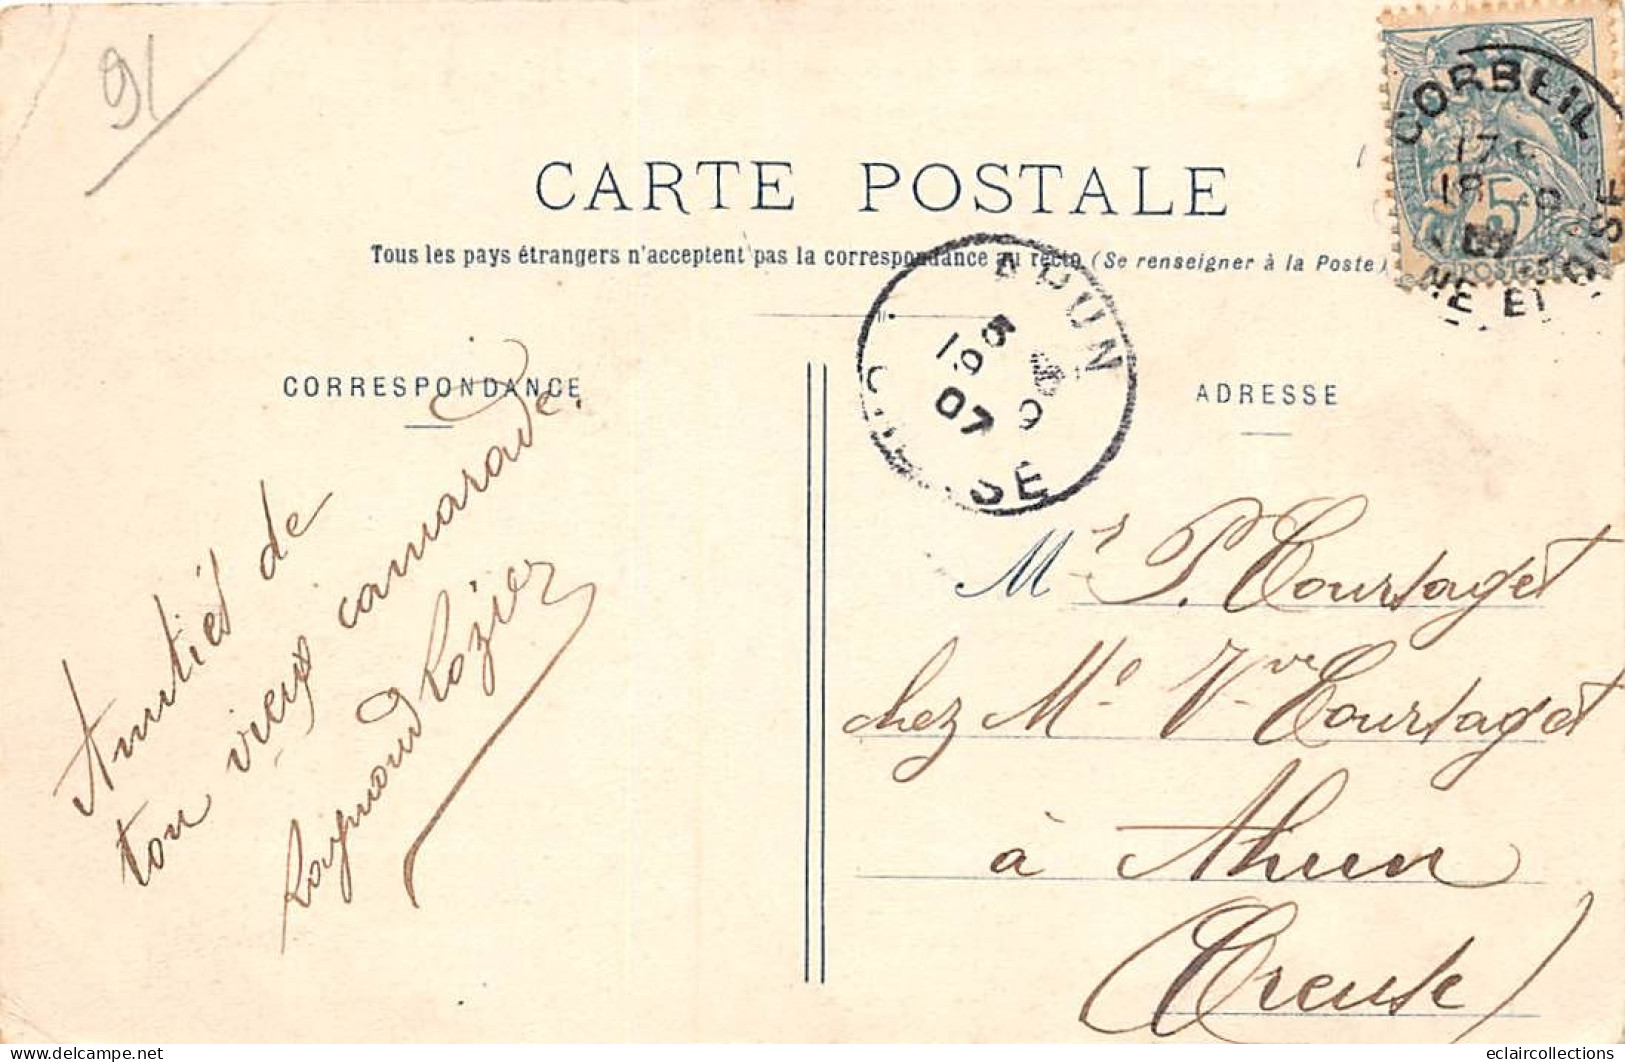 91
CARTE POSTALE
Tous les pays étrangers n'acceptent pas la correspondance au recto (Se renseigner à la Poste)
CORRESPONDANCE
ADRESSE
CORBEIL
17
18
07
ET OISE
5
POSTES
AHUN
10
07
SE
Amitiés de
ton vieux camarade.
Raymond Rozier
Mr P. Courtaget
chez Me Vve Courtaget
à Ahun
(Creuse)
eclaircollections